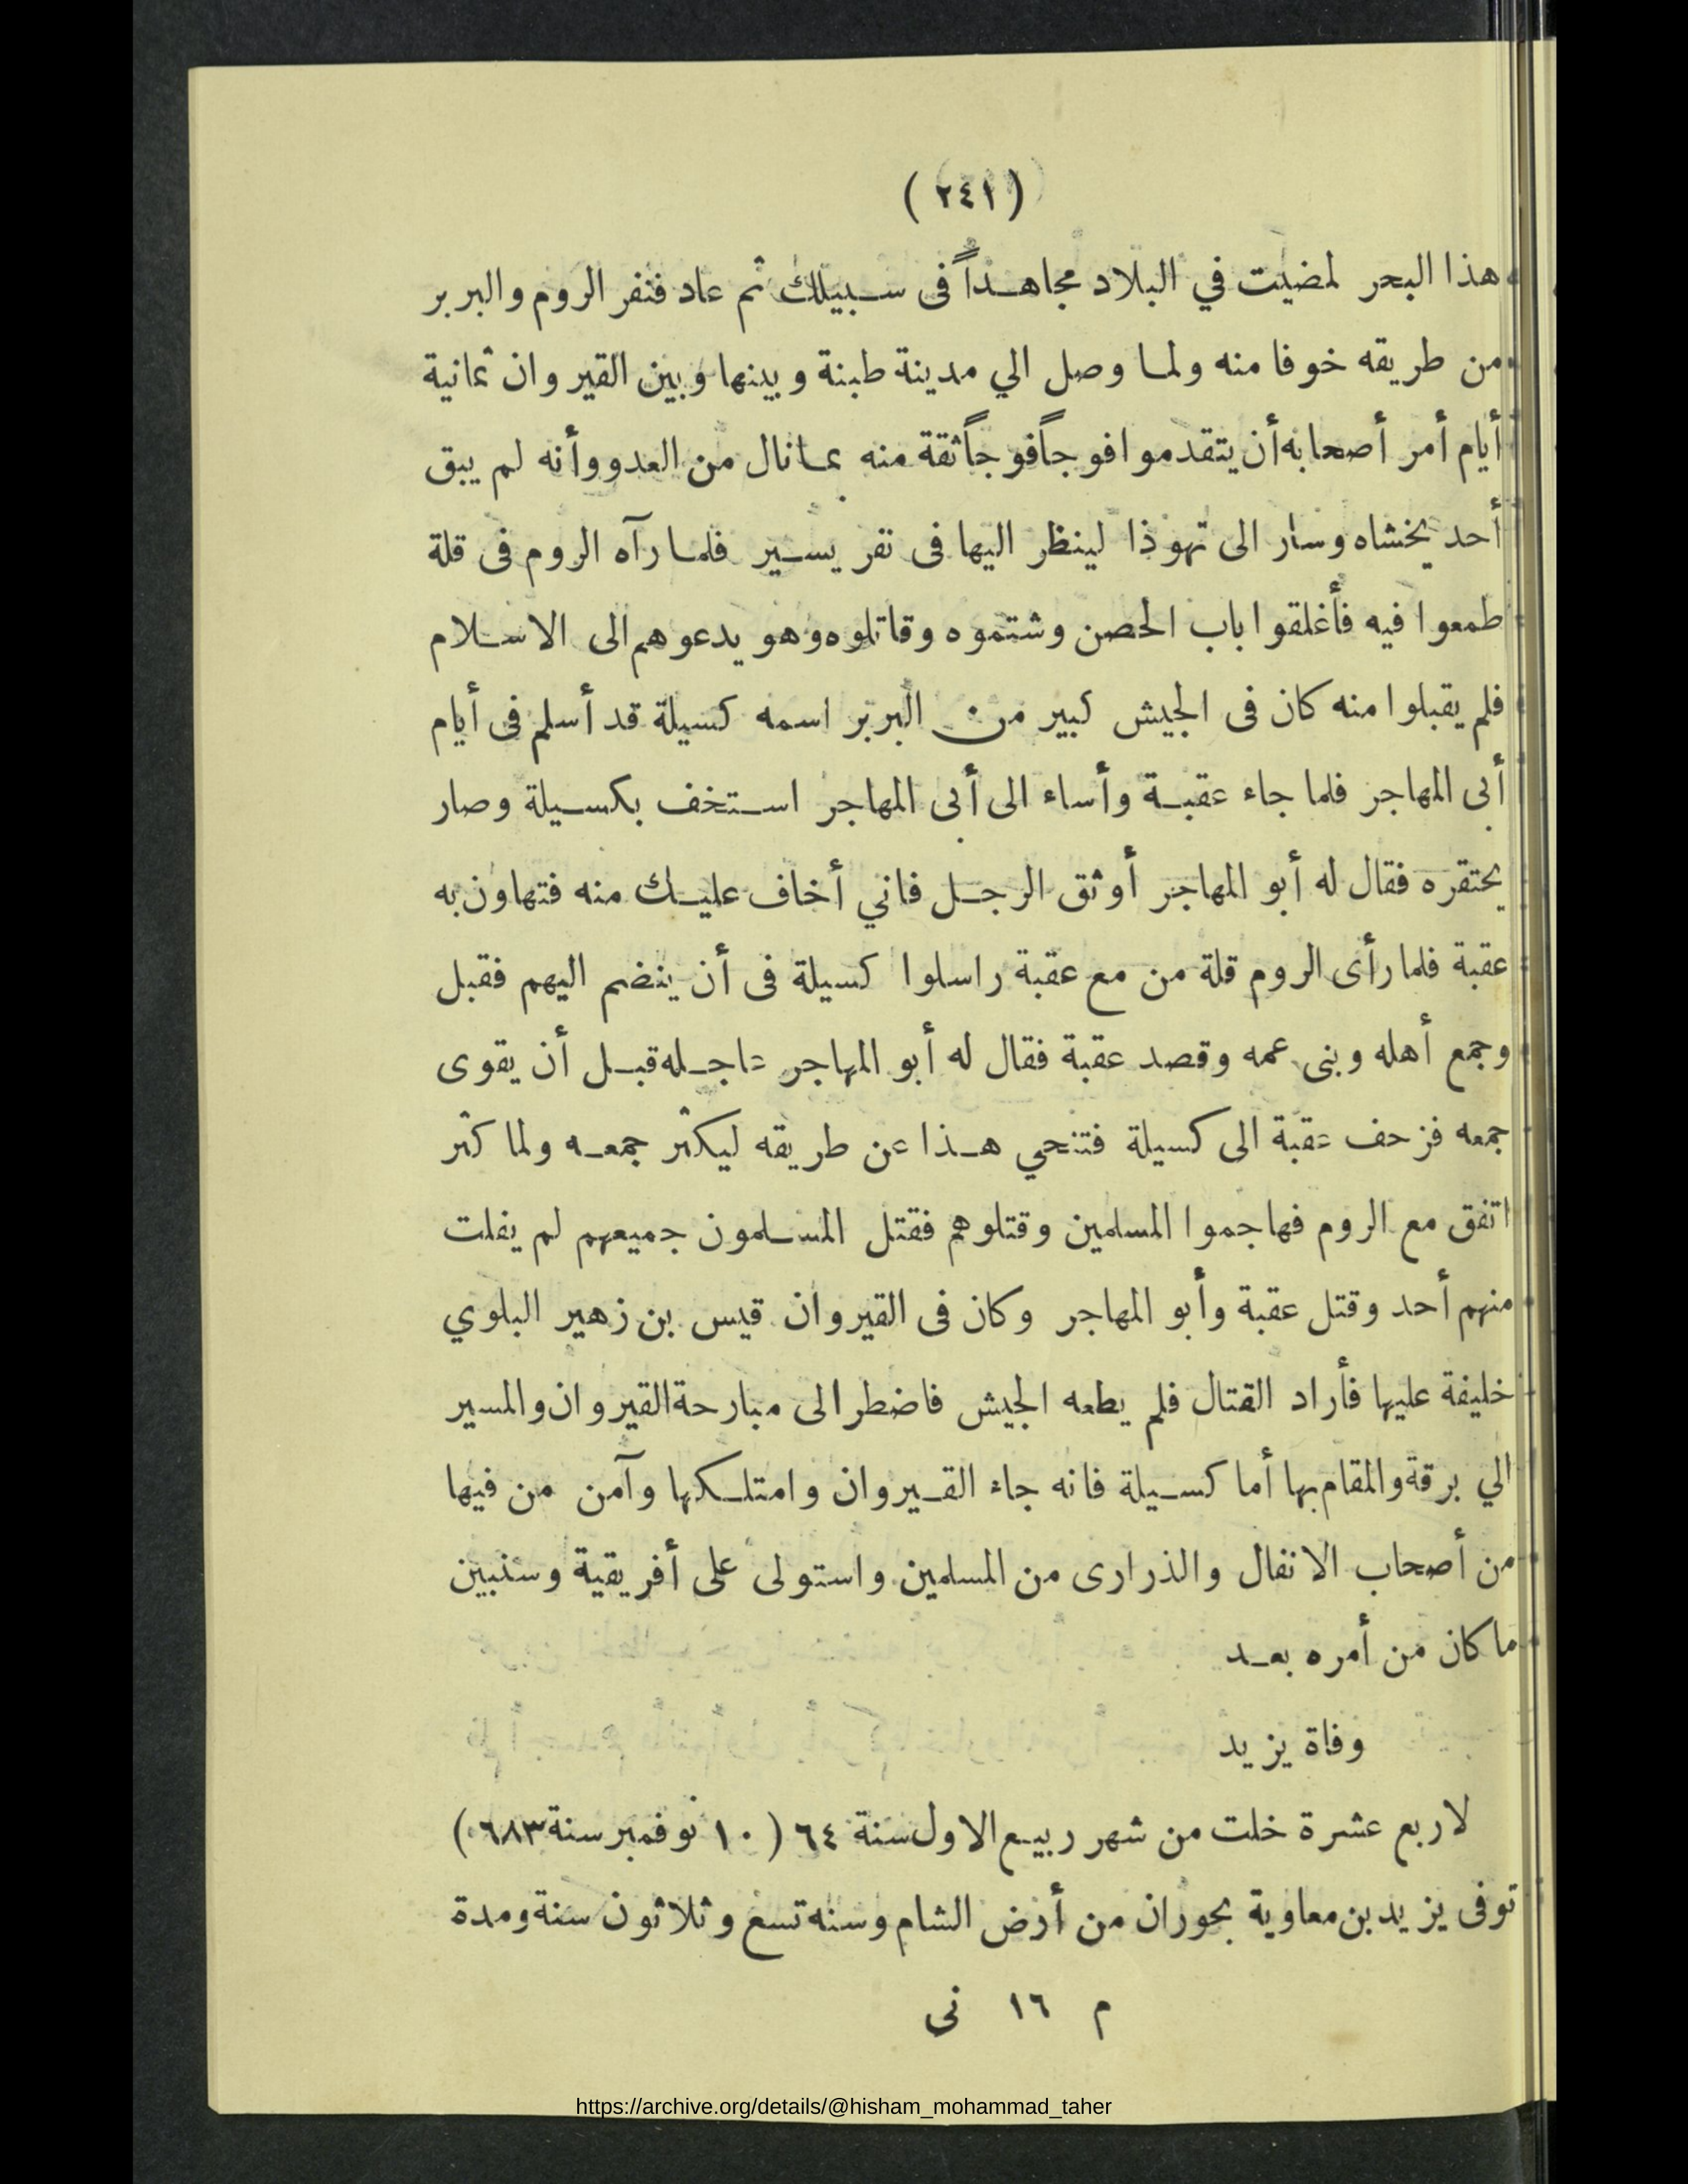 (٢٤١)
هذا البحر لمضيت في البلاد مجاهداً فى سبيلك ثم عاد فنفر الروم والبربر
من طريقه خوفا منه ولما وصل الي مدينة طبنة وبينها وبين القيروان ثمانية
أيام أمر أصحابه أن يتقدموا فوجاً فوجاً ثقة منه بما نال من العدو وأنه لم يبق
أحد يخشاه وسار الى تهوذا لينظر اليها فى نفر يسير فلما رآه الروم فى قلة
طمعوا فيه فأغلقوا باب الحصن وشتموه وقاتلوه وهو يدعوهم الى الاسلام
فلم يقبلوا منه كان فى الجيش كبير من البربر اسمه كسيلة قد أسلم فى أيام
أبى المهاجر فلما جاء عقبة وأساء الى أبى المهاجر استخف بكسيلة وصار
يحتقره فقال له أبو المهاجر أوثق الرجل فاني أخاف عليك منه فتهاون به
عقبة فلما رأى الروم قلة من مع عقبة راسلوا كسيلة فى أن ينضم اليهم فقبل
وجمع أهله وبنى عمه وقصد عقبة فقال له أبو المهاجر عاجله قبل أن يقوى
جمعه فزحف عقبة الى كسيلة فتنحي هذا عن طريقه ليكثر جمعه ولما كثر
اتفق مع الروم فهاجموا المسلمين وقتلوهم فقتل المسلمون جميعهم لم يفلت
منهم أحد وقتل عقبة وأبو المهاجر وكان فى القيروان قيس بن زهير البلوي
خليفة عليها فأراد القتال فلم يطعه الجيش فاضطر الى مبارحة القيروان والمسير
الي برقة والمقام بها أما كسيلة فانه جاء القيروان وامتلكها وآمن من فيها
من أصحاب الانفال والذرارى من المسلمين واستولى على أفريقية وسنبين
ما كان من أمره بعد
وفاة يزيد
لاربع عشرة خلت من شهر ربيع الاول سنة ٦٤ (١٠ نوفمبر سنة ٦٨٣)
توفى يزيد بن معاوية بحوران من أرض الشام وسنه تسع وثلاثون سنة ومدة
م ١٦ نى
https://archive.org/details/@hisham_mohammad_taher